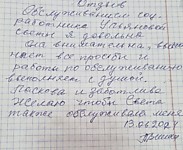 Отзыв
Обслуживанием соц-
работника Ульяновой
Светы я довольна.
Она внимательна, выпол-
няет все просьбы и
работа по обслуживанию
выполняет с душой.
Ласкова и заботлива
Желаю чтобы Света
также обслуживала меня
13.06.202